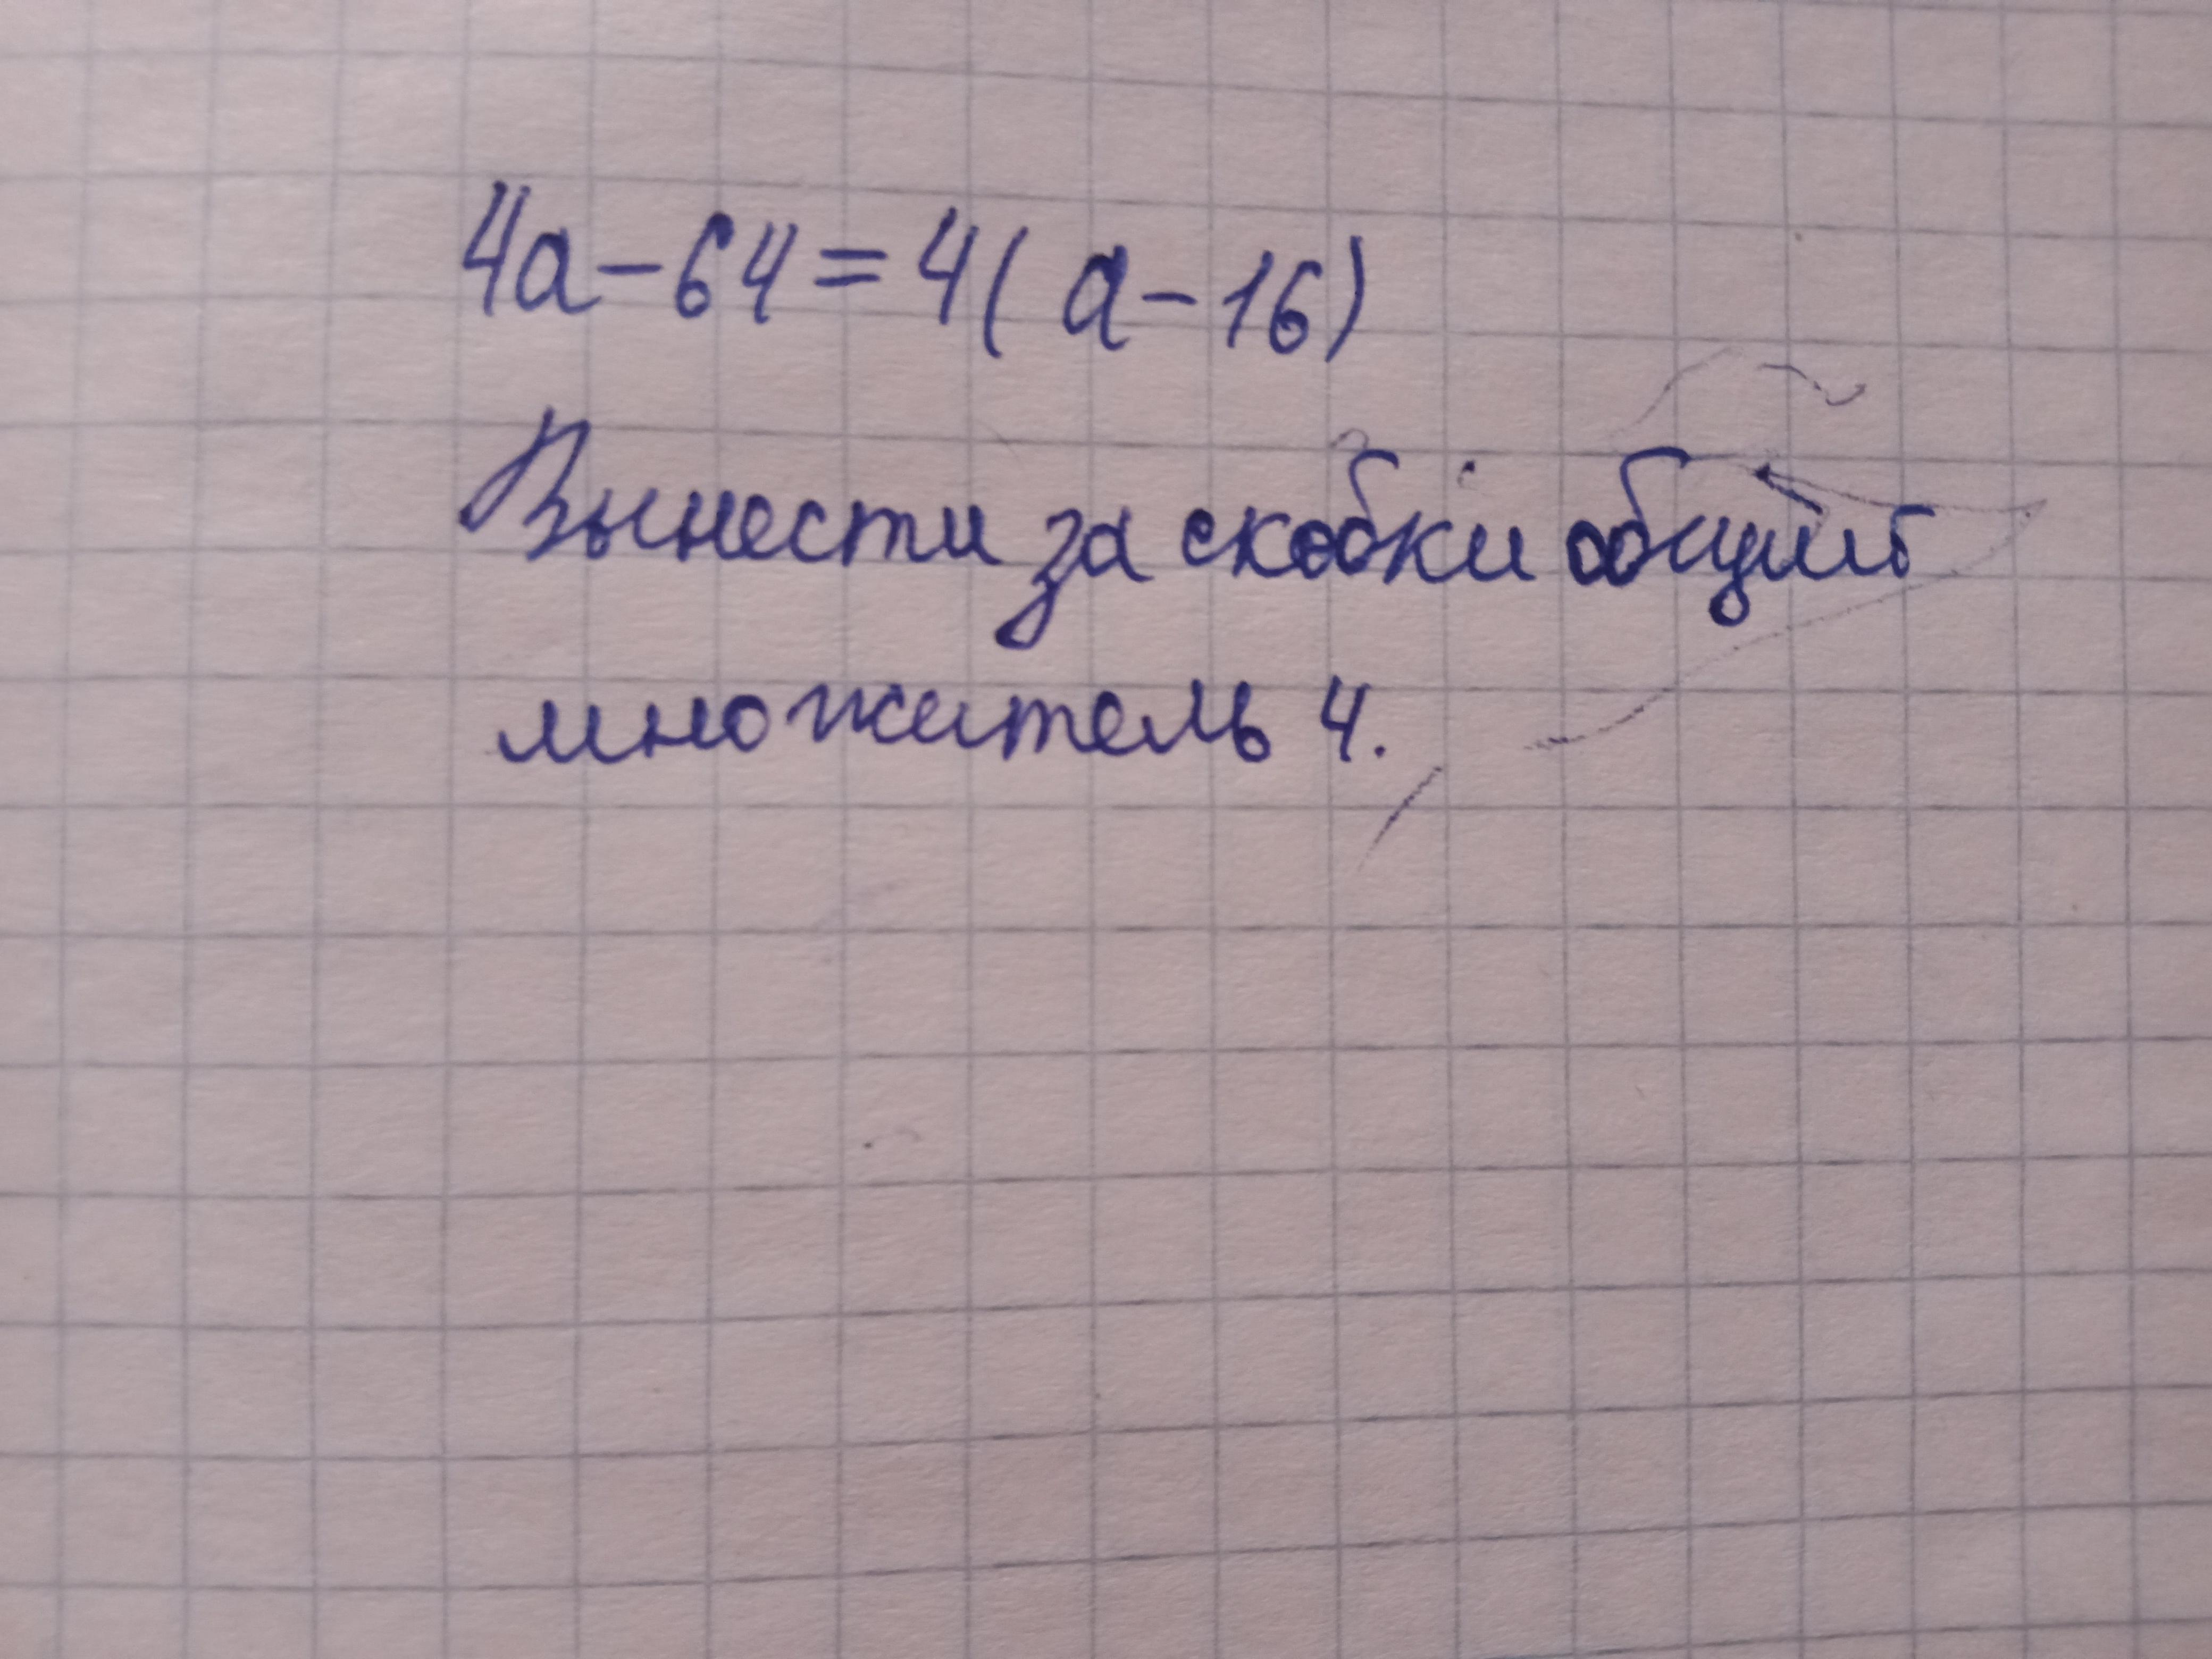 4а-64=4(а-16)
Вынести за скобки общий
множитель 4.